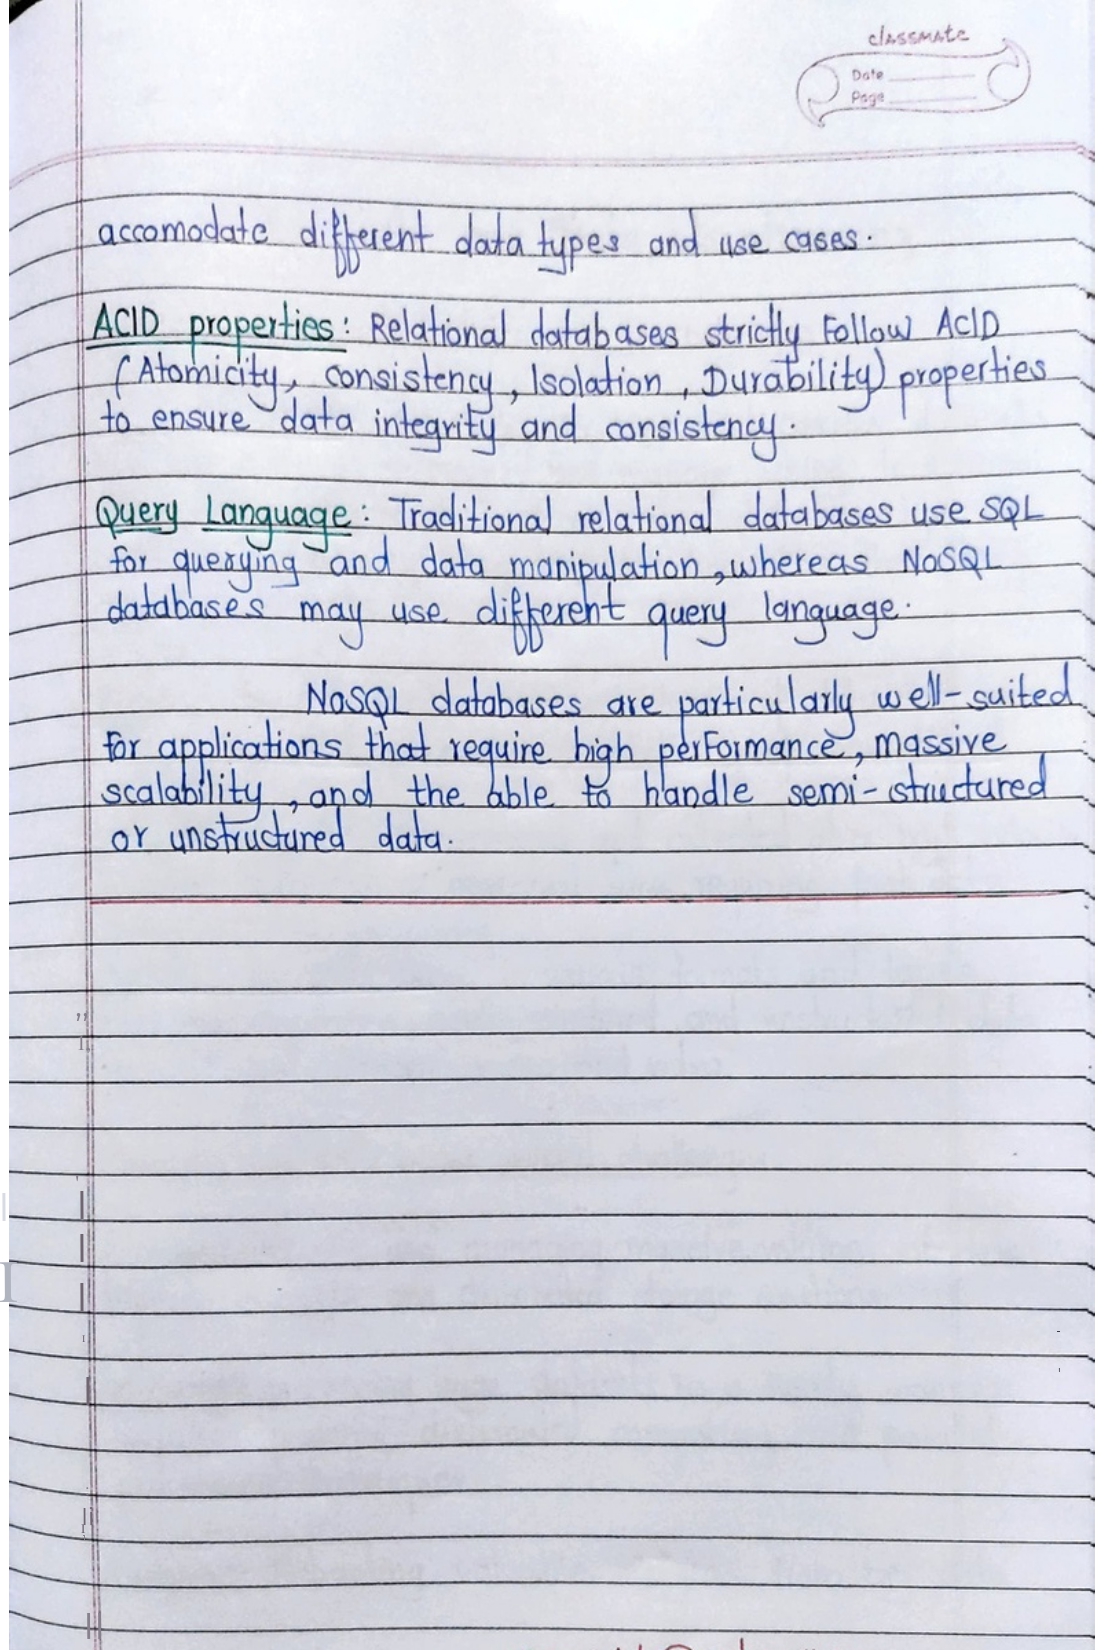 classmate
Date
Page
accomodate different data types and use cases.
ACID properties: Relational databases strictly Follow ACID
(Atomicity, consistency, Isolation, Durability) properties
to ensure data integrity and consistency.
Query Language: Traditional relational databases use SQL
for querying and data manipulation, whereas NoSQL
databases may use different query language.
NoSQL databases are particularly well-suited
for applications that require high performance, massive
scalability, and the able to handle semi-structured
or unstructured data.